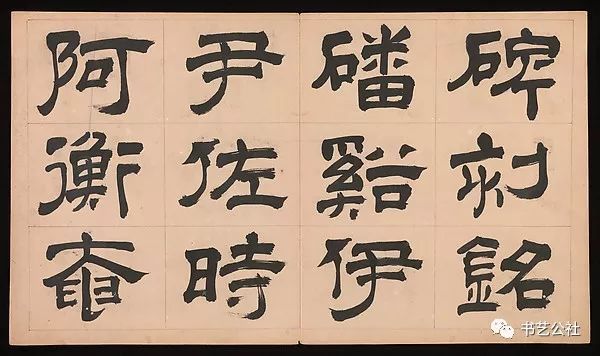 碑刻銘
磻谿伊
尹佐時
阿衡奄
书艺公社